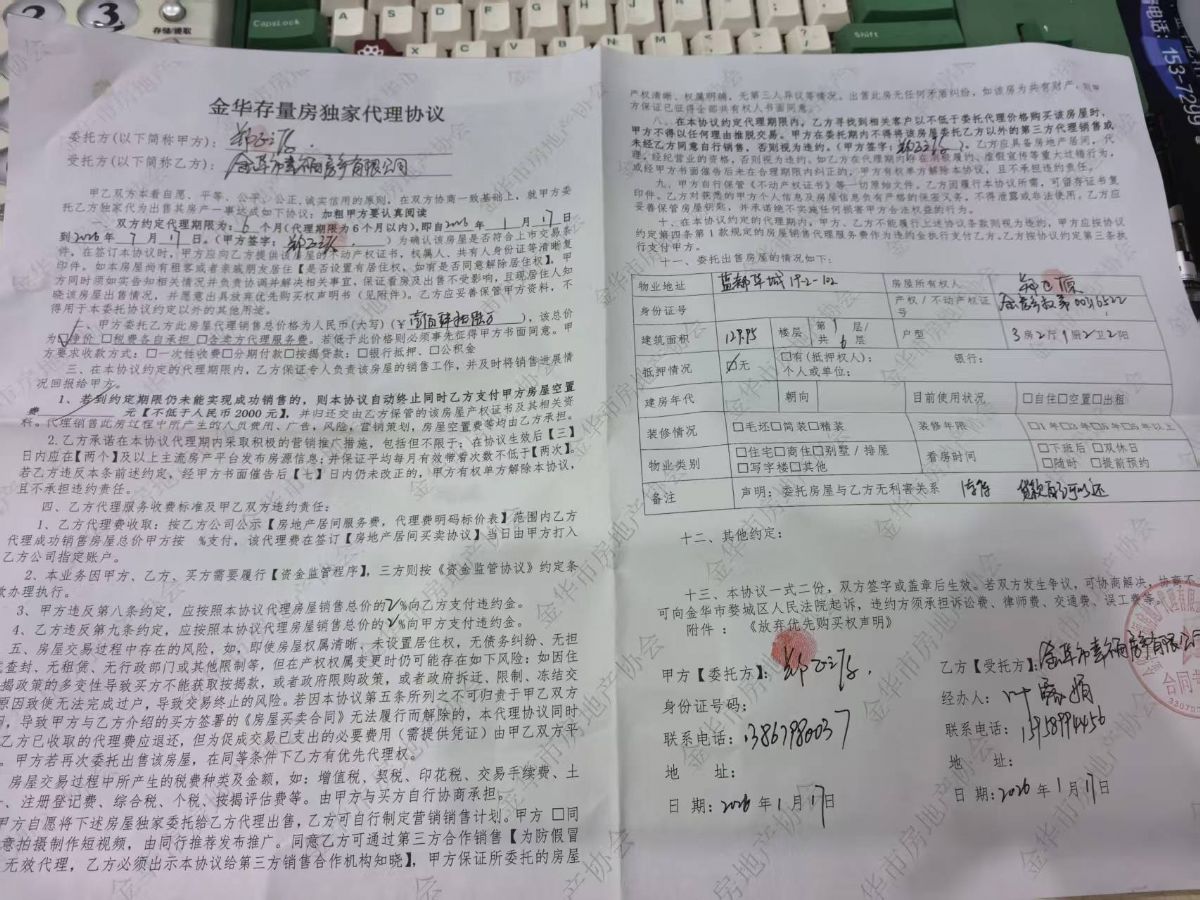 金华存量房独家代理协议
委托方(以下简称甲方):
受托方(以下简称乙方): 金华市幸福房产有限公司
甲乙双方本着自愿、平等、公平、公正、诚实信用的原则，在双方协商一致基础上，就甲方委
托乙方独家代为出售其房产一事达成如下协议：加粗甲方要认真阅读
一、双方约定代理期限为：6个月(代理期限为6个月以内)，即自2026年1月17日
到2026年7月17日。(甲方签字： )为确认该房屋是否符合上市交易条
件，在签订本协议时，甲方应向乙方提供该房屋的不动产权证书，权属人、共有人身份证等清晰复
印件。如本房屋尚有租客或者亲戚朋友居住【是否设置有居住权，如有是否同意解除居住权】，甲
方同时须如实告知相关情况并负责协调并解决相关事宜，保证看房及出售不受影响，且现居住人知
晓该房屋出售情况，并愿意出具放弃优先购买权声明书（见附件）。乙方应妥善保管甲方资料，不
得用于本委托协议约定以外的其他用途。
二、甲方委托乙方此房屋代理销售总价格为人民币(大写)(¥ )，该总价
为☑净价 □税费各自承担 □含卖方代理服务费。若低于此价格则必须事先征得甲方书面同意。甲
方要求收款方式：□一次性收费□分期付款□按揭贷款：□银行抵押、□公积金
三、在本协议约定的代理期限内，乙方保证专人负责该房屋的销售工作，并及时将销售进展情
况回报给甲方。
1、若到约定期限仍未能实现成功销售的，则本协议自动终止同时乙方支付甲方房屋空置
费 元【不低于人民币2000元】，并归还交由乙方保管的该房屋产权证书及其相关资
料。代理销售此房过程中所产生的人员费用、广告，风险，营销策划，房屋空置费等均由乙方承担。
2.乙方承诺在本协议代理期内采取积极的营销推广措施，包括但不限于：在协议生效后【三】
日内应在【两个】及以上主流房产平台发布房源信息；并保证平均每月有效带看次数不低于【两次】。
若乙方违反本条前述约定，经甲方书面催告后【七】日内仍未改正的，甲方有权单方解除本协议，
且不承担违约责任。
四、乙方代理服务收费标准及甲乙双方违约责任：
1、乙方代理费收取：按乙方公司公示【房地产居间服务费，代理费明码标价表】范围内乙方
代理成功销售房屋总价甲方按 %支付，该代理费在签订【房地产居间买卖协议】当日由甲方打入
乙方公司指定账户。
2、本业务因甲方、乙方、买方需要履行【资金监管程序】，三方则按《资金监管协议》约定条
款办理执行。
3、甲方违反第八条约定，应按照本协议代理房屋销售总价的2%向乙方支付违约金。
4、乙方违反第九条约定，应按照本协议代理房屋销售总价的2%向甲方支付违约金。
五、房屋交易过程中存在的风险，如，即使房屋权属清晰、未设置居住权，无债务纠纷、无担
无查封、无租赁、无行政部门或其他限制等，但在产权权属变更时仍可能存在如下风险：如因住
揭政策的多变性导致买方不能获取按揭款，或者政府限购政策，或者政府拆迁、限制、冻结交
原因致使无法完成过户，导致交易终止的风险。若因本协议第五条所列之不可归责于甲乙双方
，导致甲方与乙方介绍的买方签署的《房屋买卖合同》无法履行而解除的，本代理协议同时
乙方已收取的代理费应退还，但为促成交易已支出的必要费用(需提供凭证)由甲乙双方平
。甲方若再次委托出售该房屋，在同等条件下乙方有优先代理权。
房屋交易过程中所产生的税费种类及金额，如：增值税、契税、印花税、交易手续费、土
、注册登记费、综合税、个税、按揭评估费等。由甲方与买方自行协商承担。
甲方自愿将下述房屋独家委托给乙方代理出售，乙方可自行制定营销销售计划。甲方 □同
意拍摄制作短视频，由同行推荐发布推广。同意乙方可通过第三方合作销售【为防假冒
无效代理，乙方必须出示本协议给第三方销售合作机构知晓】，甲方保证所委托的房屋
产权清晰、权属明确，无第三人异议等情况。出售此房无任何矛盾纠纷，如该房为共有财产，则甲
方保证已征得全部共有权人书面同意。
八、在本协议约定代理期限内，乙方寻找到相关客户以不低于委托代理价格购买该房屋时，
甲方不得以任何理由推脱交易。甲方在委托期内不得将该房屋委托乙方以外的第三方代理销售或
未经乙方同意自行销售，否则视为违约。(甲方签字： )。乙方应具备房地产居间，代
理，经纪营业的资格，否则视为违约。如乙方在代理期内存在消极履约、虚假宣传等重大过错行为，
或经甲方书面催告后未在合理期限内纠正的，甲方有权单方解除本协议，且不承担违约责任。
九、甲方自行保管《不动产权证书》等一切原始文件。乙方因履行本协议所需，可留存证书复
印件。乙方对获悉的甲方个人信息及房屋信息负有严格的保密义务，不得泄露或非法使用。乙方应
妥善保管房屋钥匙，并承诺绝不实施任何损害甲方合法权益的行为。
十、在本协议约定的代理期内，甲方、乙方不能履行上述协议条款则视为违约，甲方应按协议
约定第四条第1款规定的房屋销售代理服务费作为违约金执行支付乙方。乙方按协议约定第三条执
行支付甲方。
十一、委托出售房屋的情况如下：
物业地址 蓝都华城19-2-102 房屋所有人
身份证号 产权/不动产权证号 00316522
建筑面积 129.95 楼层 第1层/共6层 户型 3房2厅1厨2卫2阳
抵押情况 ☑无 □有(抵押权人)： 银行： 个人或单位：
建房年代 朝向 目前使用状况 □自住□空置□出租
装修情况 □毛坯□简装□精装 装修年限 □1年□3年□5年□5年以上
物业类别 □住宅□商住□别墅/排屋 □写字楼□其他 看房时间 □下班后 □双休日 □随时 □提前预约
备注 声明：委托房屋与乙方无利害关系
十二、其他约定：
十三、本协议一式二份，双方签字或盖章后生效。若双方发生争议，可协商解决，协商不
可向金华市婺城区人民法院起诉，违约方须承担诉讼费、律师费、交通费、误工费等。
附件：《放弃优先购买权声明》
甲方【委托方】：
身份证号码：
联系电话：13867980037
地 址：
日 期：2026年1月17日
乙方【受托方】：金华市幸福房产有限公司
经办人：
联系电话：15958994456
地 址：
日 期：2026年1月17日